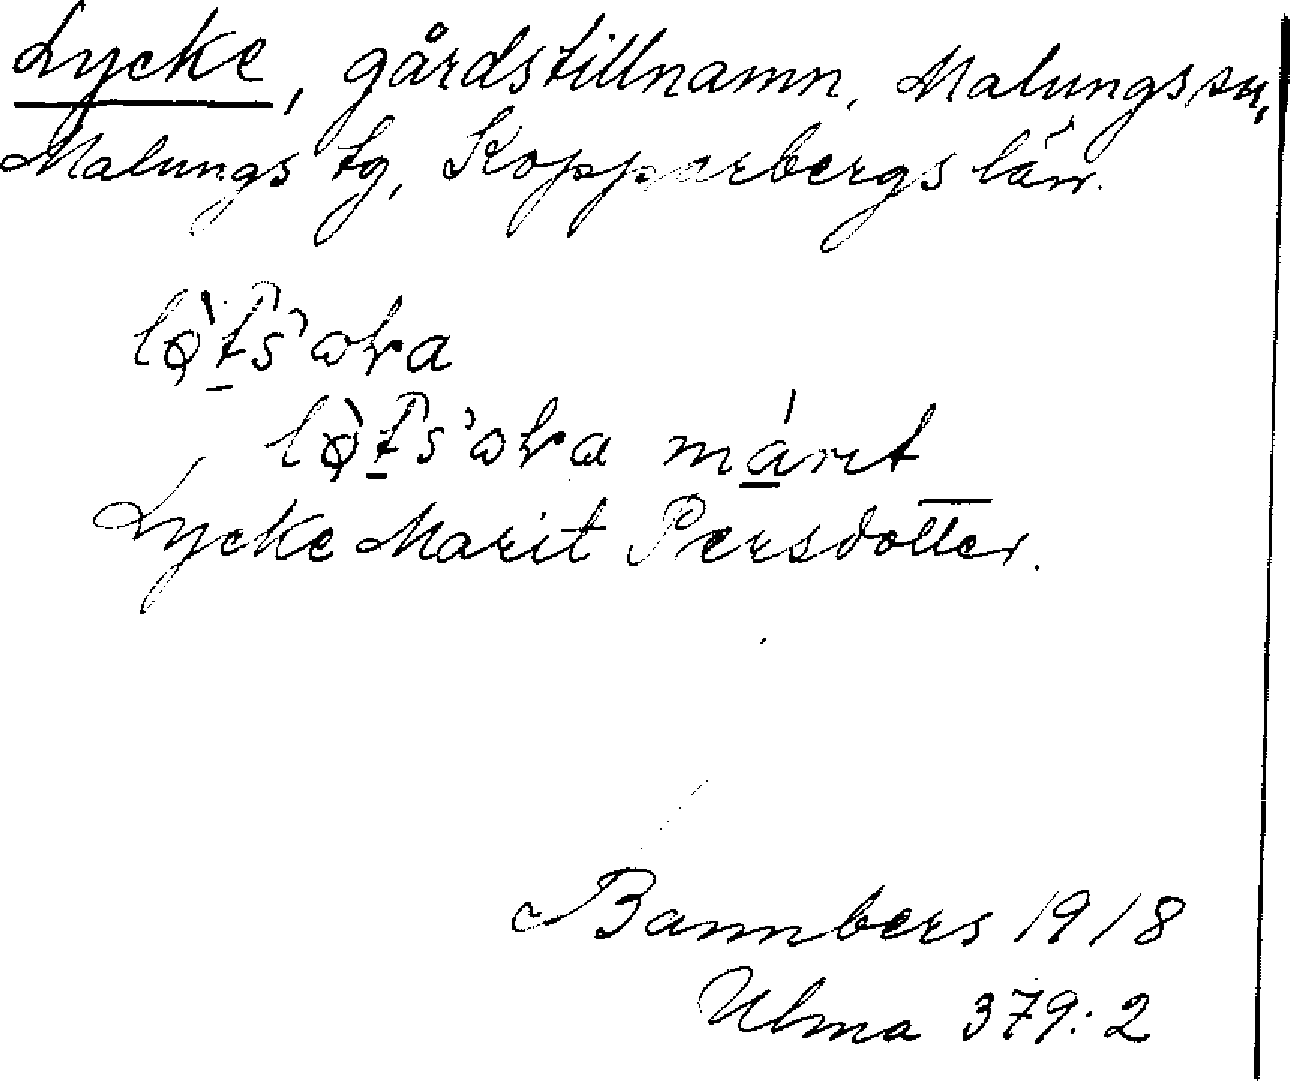 Lycke, gårdstillnamn, Malungs sn,
Malungs tg, Kopparbergs län.
Lycke Marit Persdotter.
Bannbers 1918
Ulma 379:2